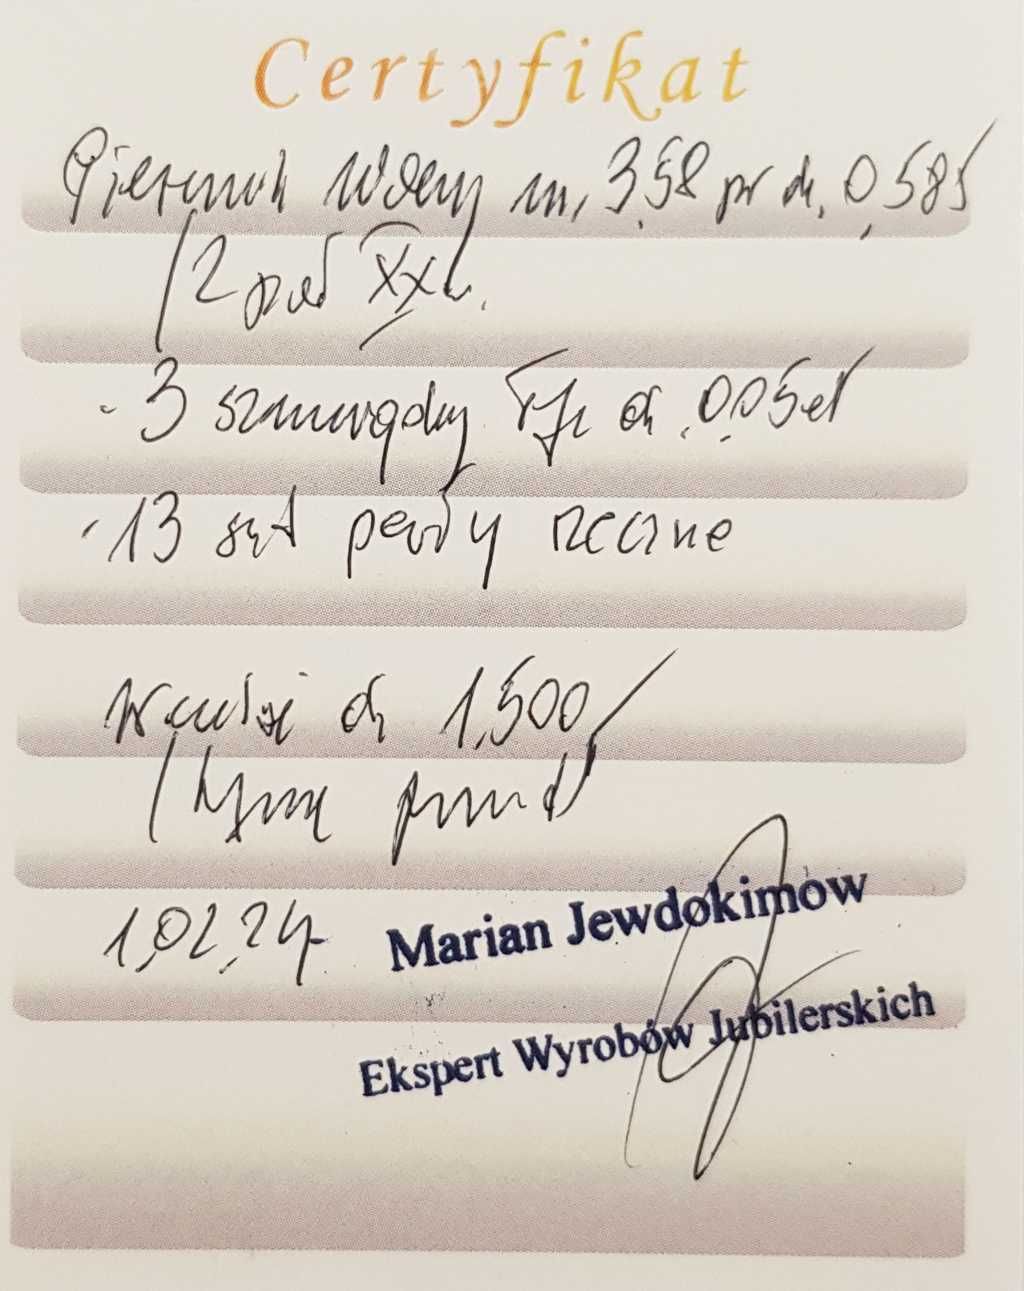 Certyfikat
Pierścionek złoty m. 3,58 pr ok. 0,585
/ 2 poł XX w.
- 3 szmaragdy ok. 0,05 ct
- 13 szt perły rzeczne
Wartość ok 1,500/
1,02,24
Marian Jewdokimow
Ekspert Wyrobów Jubilerskich